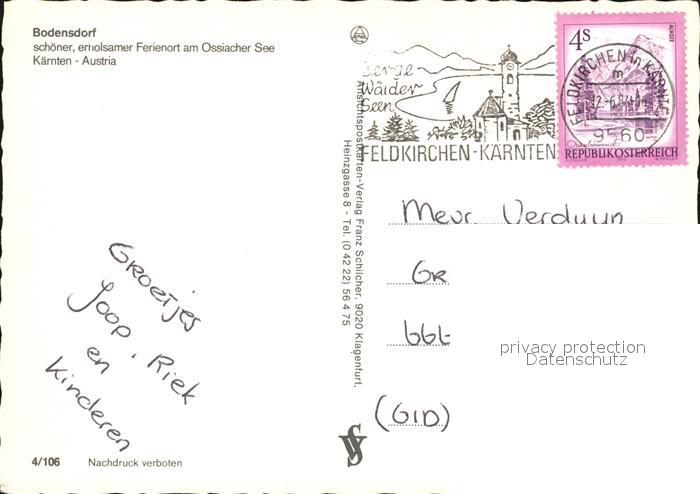 Bodensdorf
schöner, erholsamer Ferienort am Ossiacher See
Kärnten - Austria
Berge
Wälder
Seen
FELDKIRCHEN-KÄRNTEN
4S
ALMSEE
FELDKIRCHEN in KÄRNTEN
m
9560
REPUBLIK ÖSTERREICH
Ansichtspostkarten-Verlag Franz Schilcher, 9020 Klagenfurt,
Heinzgasse 8 - Tel. (0 42 22) 56 4 75
Mevr. Verduyn
GR
(GID)
privacy protection
Datenschutz
Groetjes
Joop, Riek
en
kinderen
4/106 Nachdruck verboten